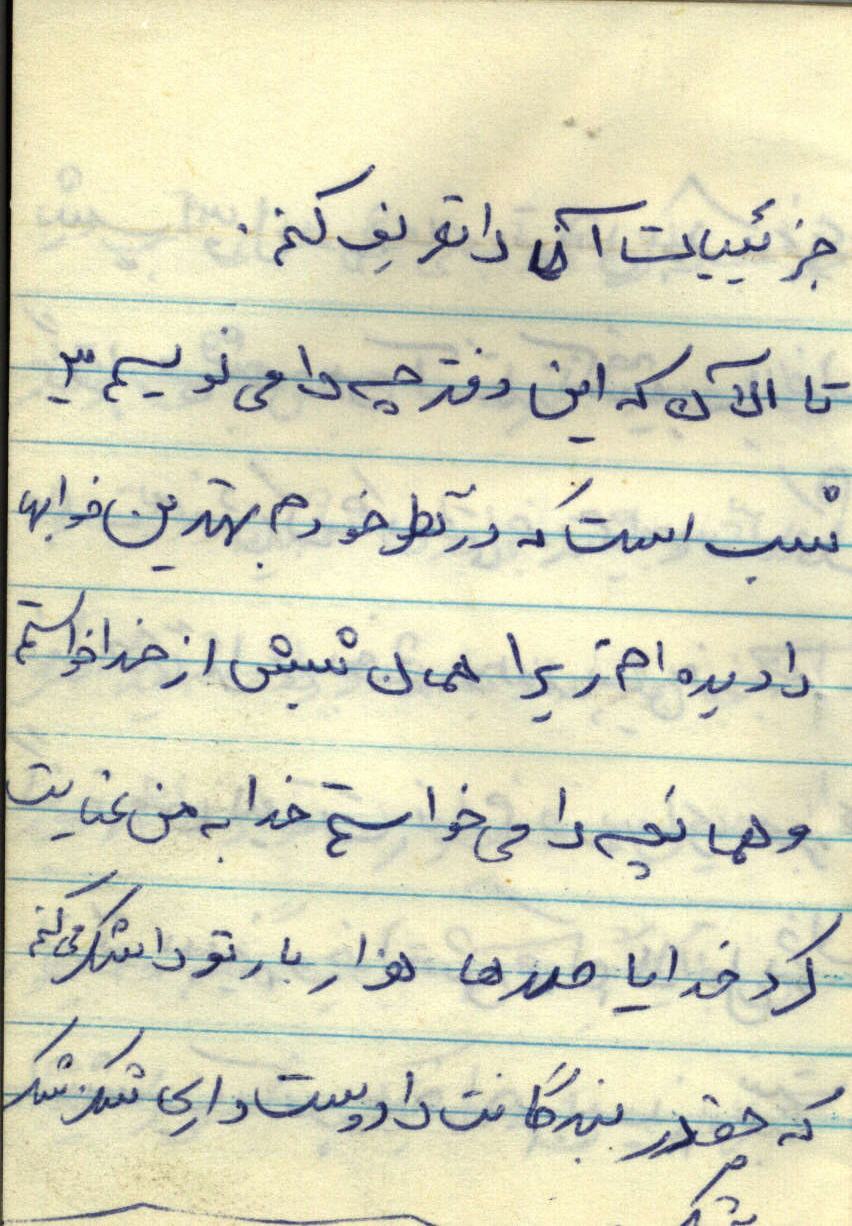 جزئییات آنها را تعریف کنم.
تا الآن که این دفترچه را می نویسم ۳
شب است که در آنطو خودم بهترین خوابها
را دیده ام زیرا همان شبش از خدا خواستم
و همانچه را می خواستم خدا به من عنایت
کرد خدایا صدها هزار بار تو را شکر می کنم
که چقدر بندگانت را دوست داری شکر شکر
شکر